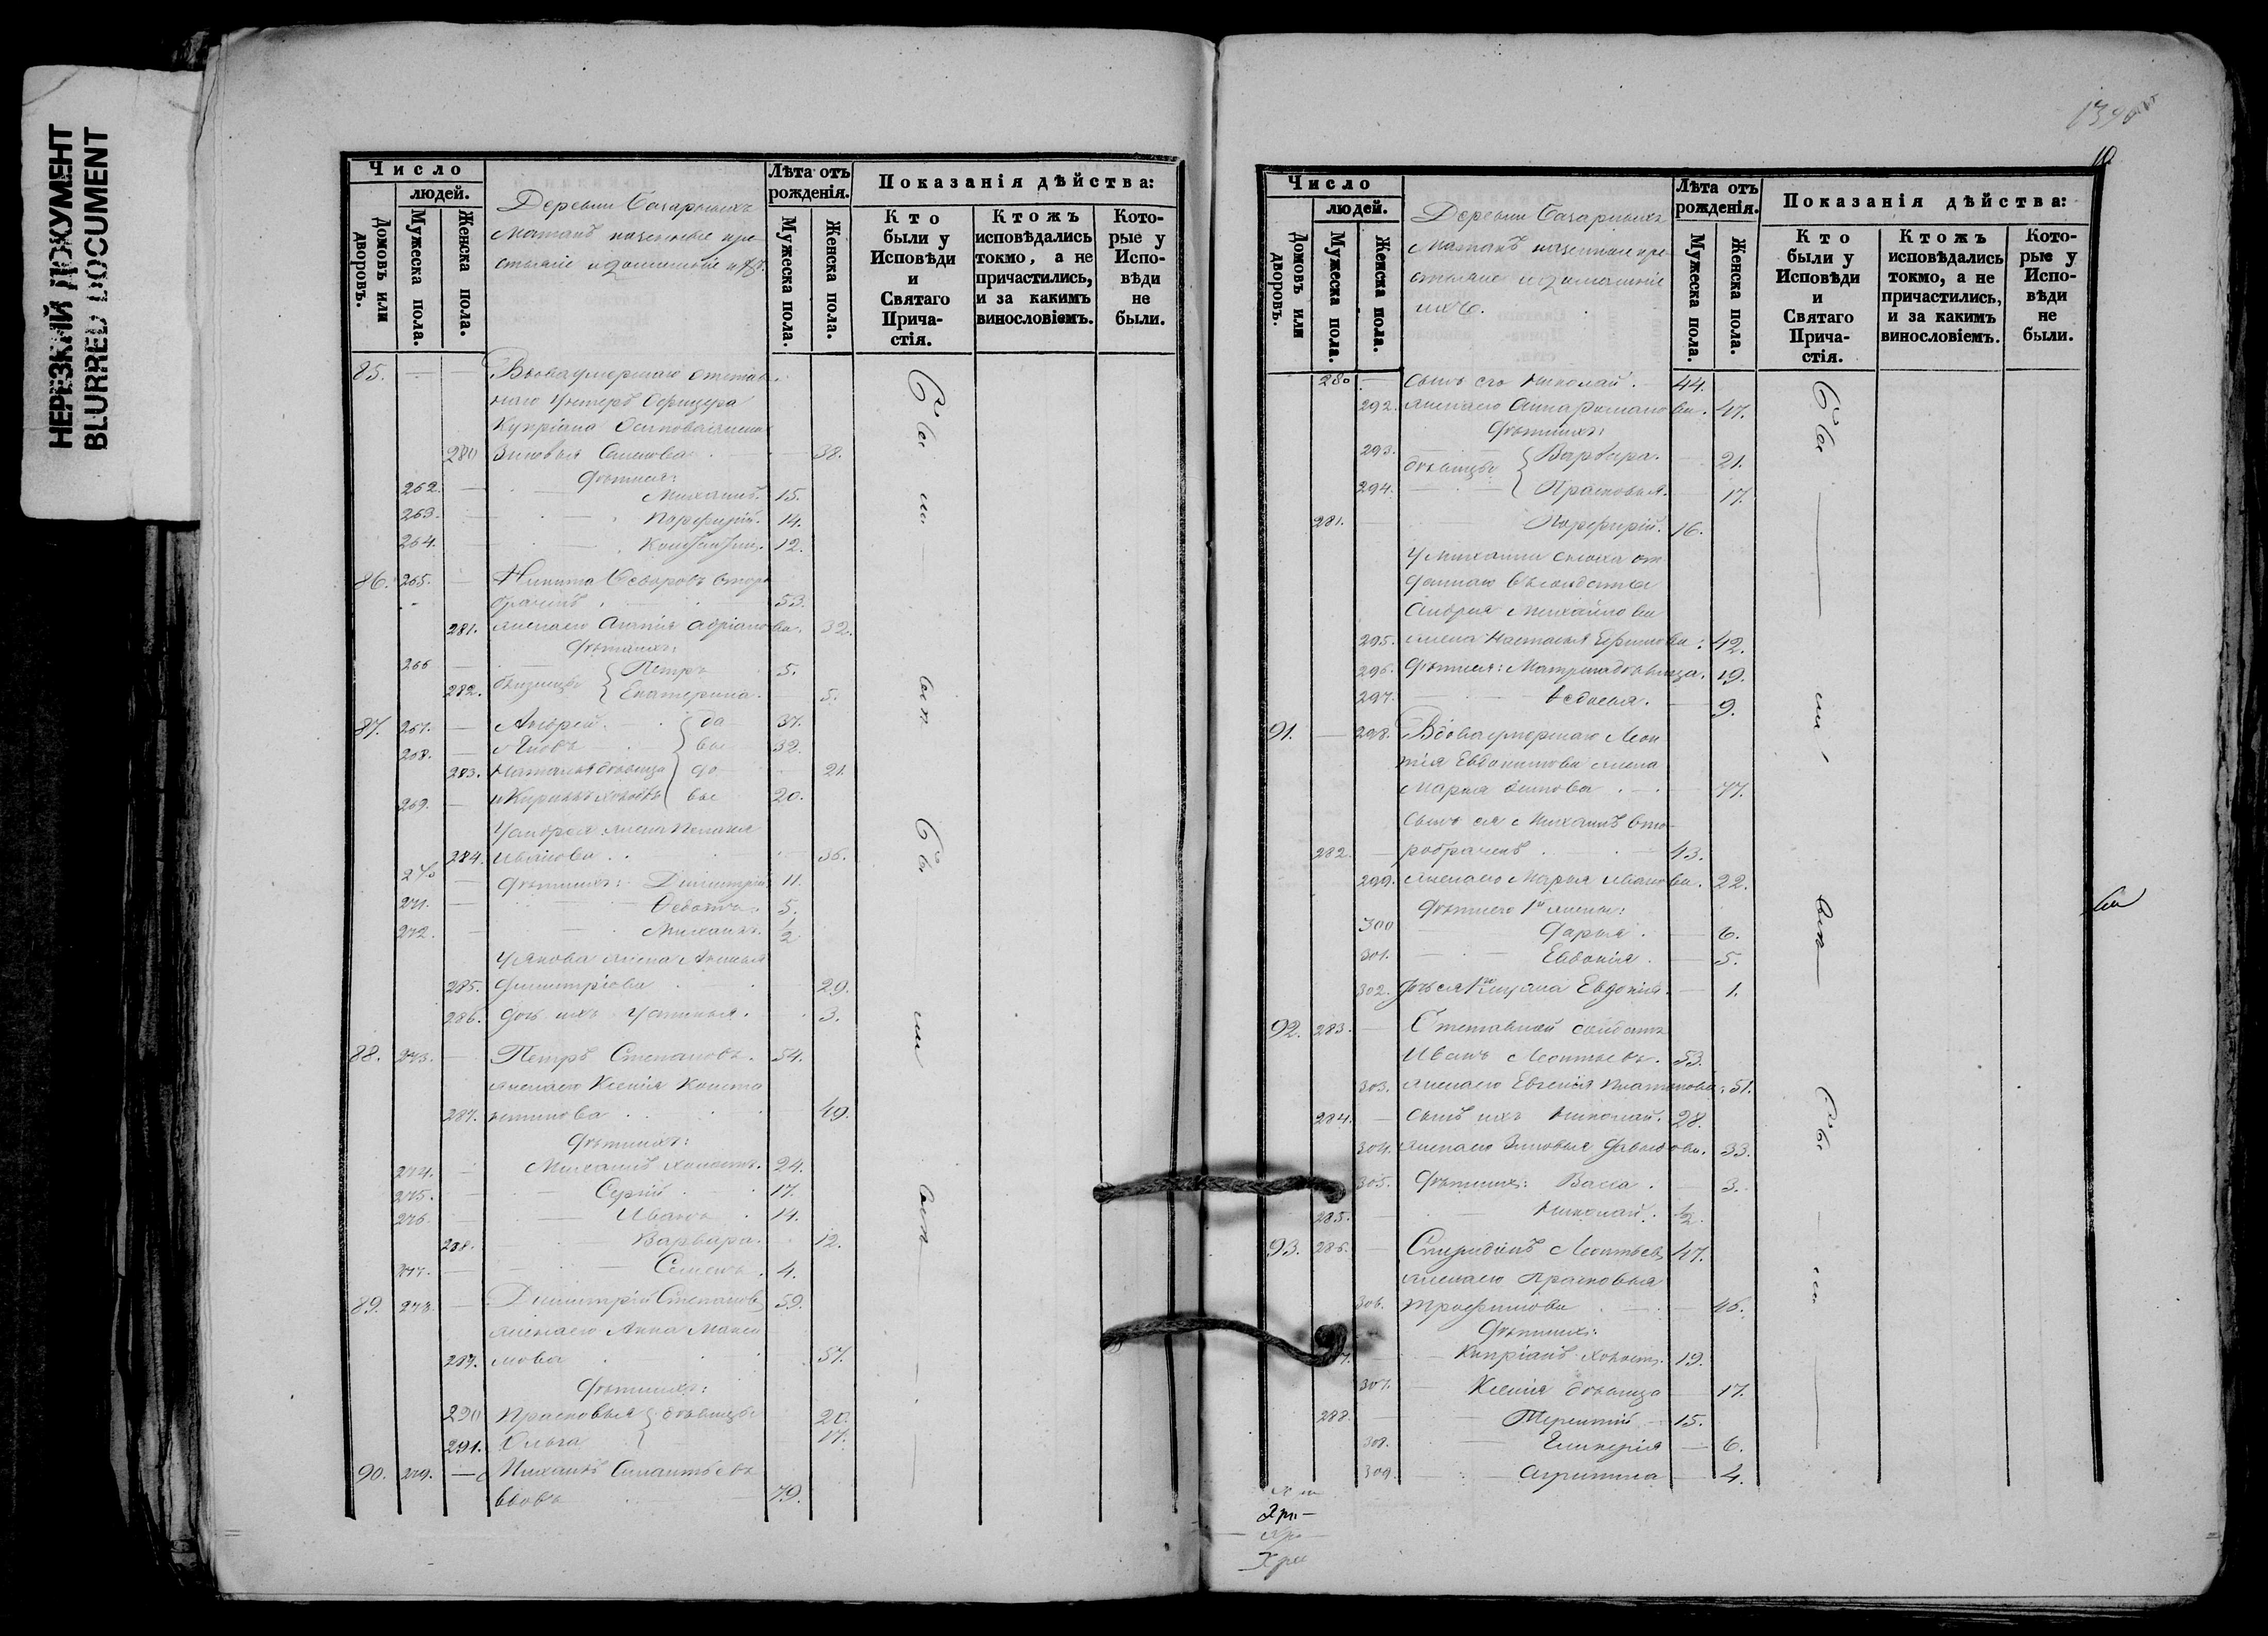 НЕРЕЗКИЙ ДОКУМЕНТ
BLURRED DOCUMENT
Число
людей.
Домовъ или дворовъ.
Мужеска пола.
Женска пола.
Деревни
казенные кре-
стьяне и домашніе ихъ.
Лѣта отъ рожденія.
Мужеска пола.
Женска пола.
Показанія дѣйства:
Кто были у Исповѣди и Святаго Прича-стія.
Ктожъ исповѣдались токмо, а не причастились, и за какимъ винословіемъ.
Кото-рые у Испо-вѣди не были.
85. Вдова умершаго отстав-
наго Унтеръ Офицера
Купріана Осипова жена
280 Зиновья 38.
Дѣти ея:
262. Михаилъ. 15.
263. Порфирій. 14.
264. Константинъ. 12.
86. 265. Никита Ѳедоровъ второ
браченъ 53.
281. жена его Адріанова. 32.
Дѣти ихъ:
266 близнецы Петръ 5.
282. Екатерина 5.
87. 267. Андрей да 37.
268. Яковъ вы 32.
283. Наталья дѣвица до 21.
269. и Кириллъ холостъ вы 20.
У Андрея жена Пелагея
284. Иванова 36.
270 Дѣти ихъ: Димитрій 11.
271. Ѳедотъ. 5.
272. Михаилъ. 1/2
У Якова жена
285. Димитріева 29.
286. дочь ихъ Устинья. 3.
88. 273. Петръ Степановъ. 54.
жена его Ксенія Конста
287. нтинова 49.
Дѣти ихъ:
274. Михаилъ холостъ. 24.
275. Сергій 17.
276. Иванъ 14.
288. Варвара. 12.
277. Семенъ. 4.
89. 278. Димитрій Степановъ 59.
жена его Анна Макси
289. мова 57.
Дѣти ихъ:
290 Прасковья дѣвицы 20.
291. Ольга 17.
90. 279. Михаилъ
вдовъ 79.
Были
у исп
Бы
ли
у исп
Число
людей.
Домовъ или дворовъ.
Мужеска пола.
Женска пола.
Деревни
казенные кре-
стьяне и домашніе
ихъ.
Лѣта отъ рожденія.
Мужеска пола.
Женска пола.
Показанія дѣйства:
Кто были у Исповѣди и Святаго Прича-стія.
Ктожъ исповѣдались токмо, а не причастились, и за какимъ винословіемъ.
Кото-рые у Испо-вѣди не были.
280 Сынъ его Николай. 44.
292. жена его Анна Романова. 47.
Дѣти ихъ:
293. дѣвицы Варвара. 21.
294. Прасковья. 17.
281. Порфирій. 16.
У Михаила сноха от
даннаго въ солдаты
Андрея Михайлова
295. жена Настасья Ефимова. 42.
296. Дѣти ея: Матрена дѣвица. 19.
297. Ѳедосья. 9.
91. 298. Вдова умершаго Леон
тія Евдокимова жена
Марья 77.
Сынъ ея Михаилъ вто-
282. робраченъ 43.
299. жена его Марья Иванова. 22.
Дѣти его 1й жены:
300 Дарья. 6.
301. Евдокія. 5.
302. Евдокія. 1.
92. 283. Отставной солдатъ
Иванъ Леонтьевъ. 53.
303. жена его Евгенія Платонова. 51.
284. Сынъ ихъ Николай. 28.
304. жена его Зиновья Давыдова. 33.
305. Дѣти ихъ: Васса. 3.
285. Николай. 1/2.
93. 286. Спиридонъ Леонтьевъ 47.
жена его Прасковья
306. Трофимова 46.
Дѣти ихъ:
Кипріанъ холостъ. 19.
307. Ксенія дѣвица 17.
288. Терентій 15.
308. Гликерія 6.
309. Агрипина 4.